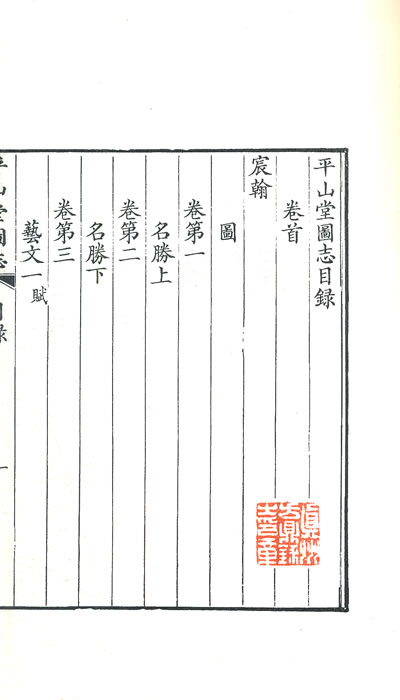 平山堂圖志目録
卷首
宸翰
圖
卷第一
名勝上
卷第二
名勝下
卷第三
藝文一 賦
平山堂圖志
目録
一